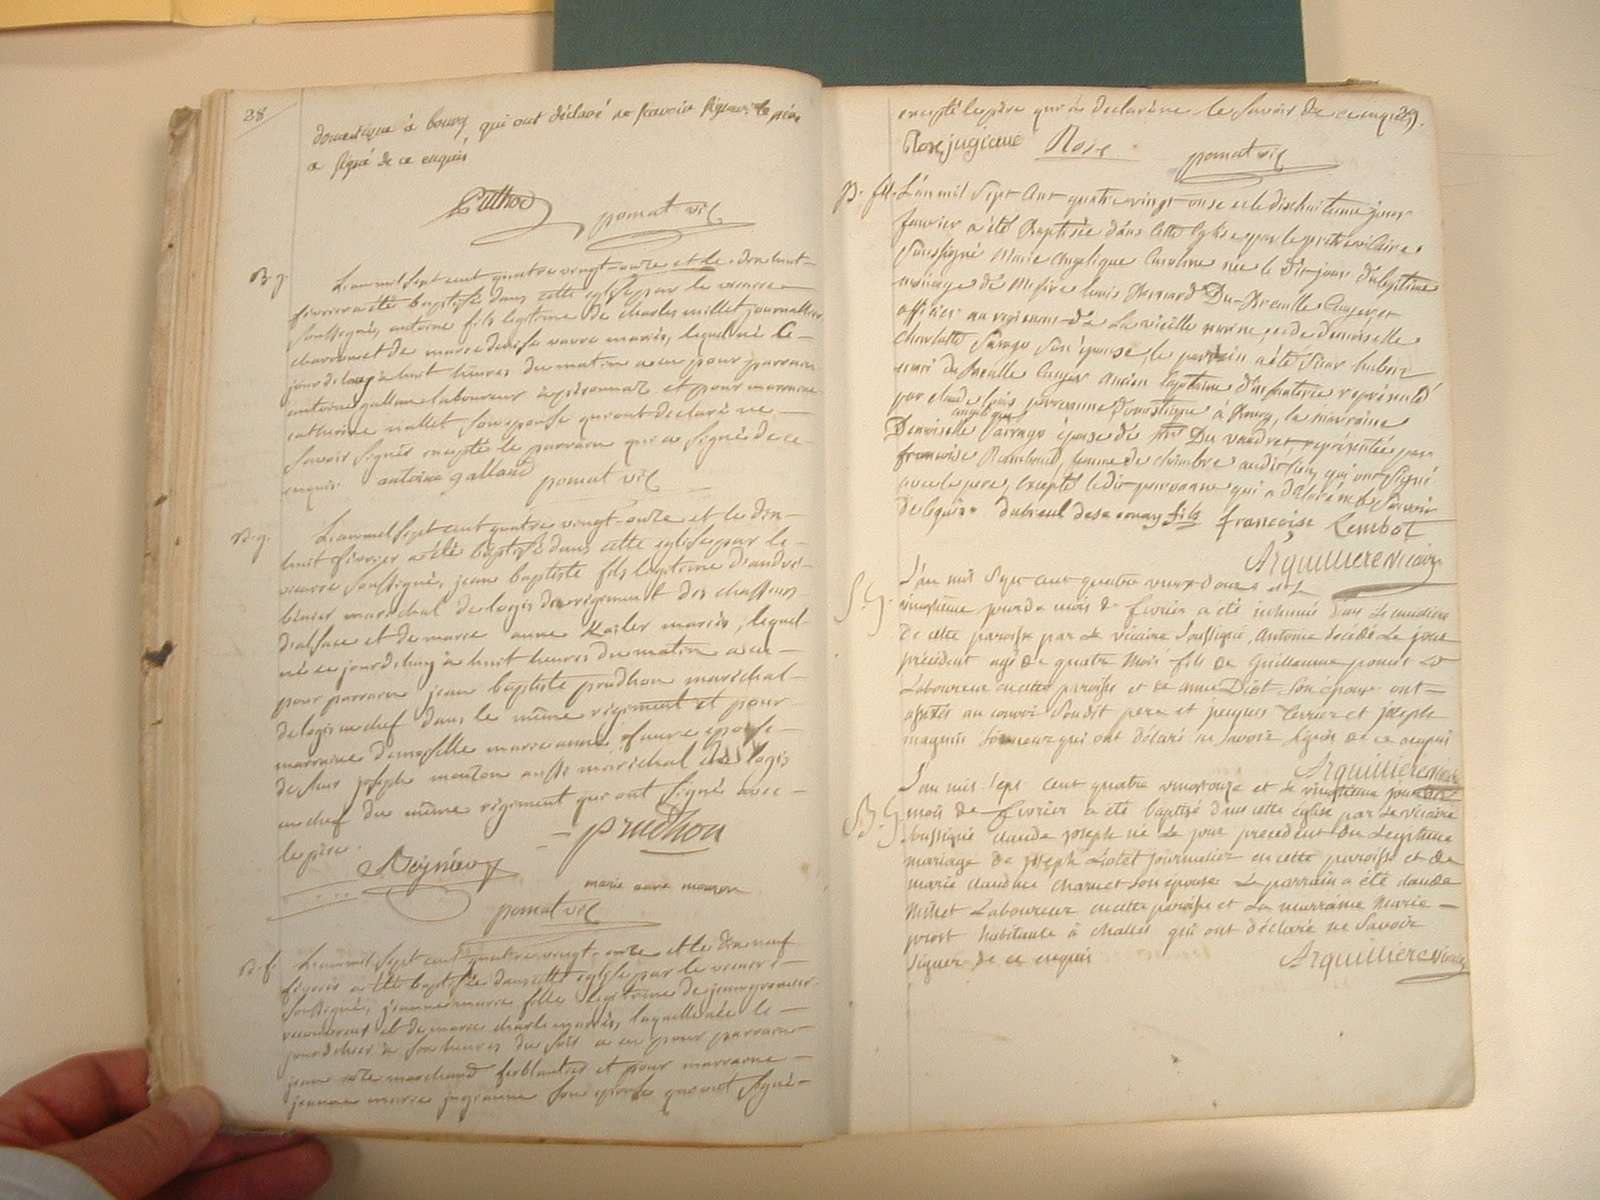 28
domestique à bourg qui ont déclaré ne scavoir signer le père
a signé de ce enquis
pomat vic
B. g.
L'an mil sept cent quatre vingt-onze et le dix huit
février a été baptisé dans cette eglise par le vicaire
soussigné, antoine fils legitime de charles millet journallier
charronet de marie denise vavre mariés, lequel né le
jour d'huy à huit heures du matin a eu pour parrain
antoine galland laboureur à et pour marraine
catherine mallet son epouse qui ont déclaré ne
savoir signés excepté le parrain qui a signé de ce
enquis antoine galland pomat vic
B. g.
L'an mil sept cent quatre vingt-onze et le dix
huit février a été baptisé dans cette eglise par le
vicaire soussigné, jean baptiste fils legitime d'andré
marechal de logis du régiment des chasseurs
d'alsace et de marie anne Kailer mariés, lequel
né ce jourd'huy à huit heures du matin a eu
pour parrain jean baptiste prudhon maréchal
de logis en chef dans le même régiment et pour
marraine demoiselle marie anne favre epouse
de sieur joseph mouzon aussi maréchal des logis
en chef du même régiment qui ont signé avec
le père.
prudhon
marie anne mouzon
pomat vic
B. f.
L'an mil sept cent quatre vingt-onze et le dix neuf
février a été baptisée dans cette eglise par le vicaire
soussigné, jeanne marie fille legitime de jean
et de marie charle mariés, laquelle née le
jour d'hier à six heures du soir a eu pour parrain
jean marchand ferblantier et pour marraine
jeanne marie jugieanne son epouse qui ont signé
29.
excepté le père qui a déclaré ne le savoir de ce enquis
Rose jugieanne Rose
pomat vic
B. fll.
L'an mil sept cent quatre vingt onze et le dixhuitieme jour
fevrier a été Baptisée dans cette Eglise par le pretre vicaire
soussigné Marie Angelique Caroline née le dit jour du legitime
mariage de Messire Louis Bernard Du-Breuille Ecuyer et
officier au regiment de La vieille marine, et de demoiselle
Charlotte Sarrago son épouse, le parrain a été Sieur
Ecuyer Ancien Capitaine d'infanterie représenté
par claude louis domestique à Bourg, la marraine
angelique
Demoiselle Sarrago épouse de Mr Du vaudret, représentée par
francoise Rombaud, femme de chambre audit lieu, qui ont signé
avec le père, excepté le dit qui a déclaré ne le savoir
de ce enquis dubreul desaconay fils françoise Lembot
Arquilliere vicaire
S. G.
L'an mil sept cent quatre vingt onze et le
vingtieme jour du mois de fevrier a été inhumé dans le cimetiere
de cette paroisse par le vicaire soussigné, Antoine décédé le jour
précédent agé de quatre mois fils de Guillaume
Laboureur en cette paroisse et de anne Diot son épouse ont
assistés au convoi Soudit pere et jacques et joseph
magnin sonneur qui ont déclaré ne savoir signer de ce enquis
Arquilliere vicaire
B. G.
L'an mil sept cent quatre vingt onze et le vingtieme jour
mois de fevrier a été baptisé dans cette eglise par le vicaire
soussigné claude joseph né le jour precedent du legitime
mariage de joseph Lotet journalier en cette paroisse et de
marie claudine charnet son épouse Le parrain a été claude
Millet Laboureur en cette paroisse et La marraine Marie
prost habitante à challes qui ont déclaré ne savoir
signer de ce enquis
Arquilliere vicaire